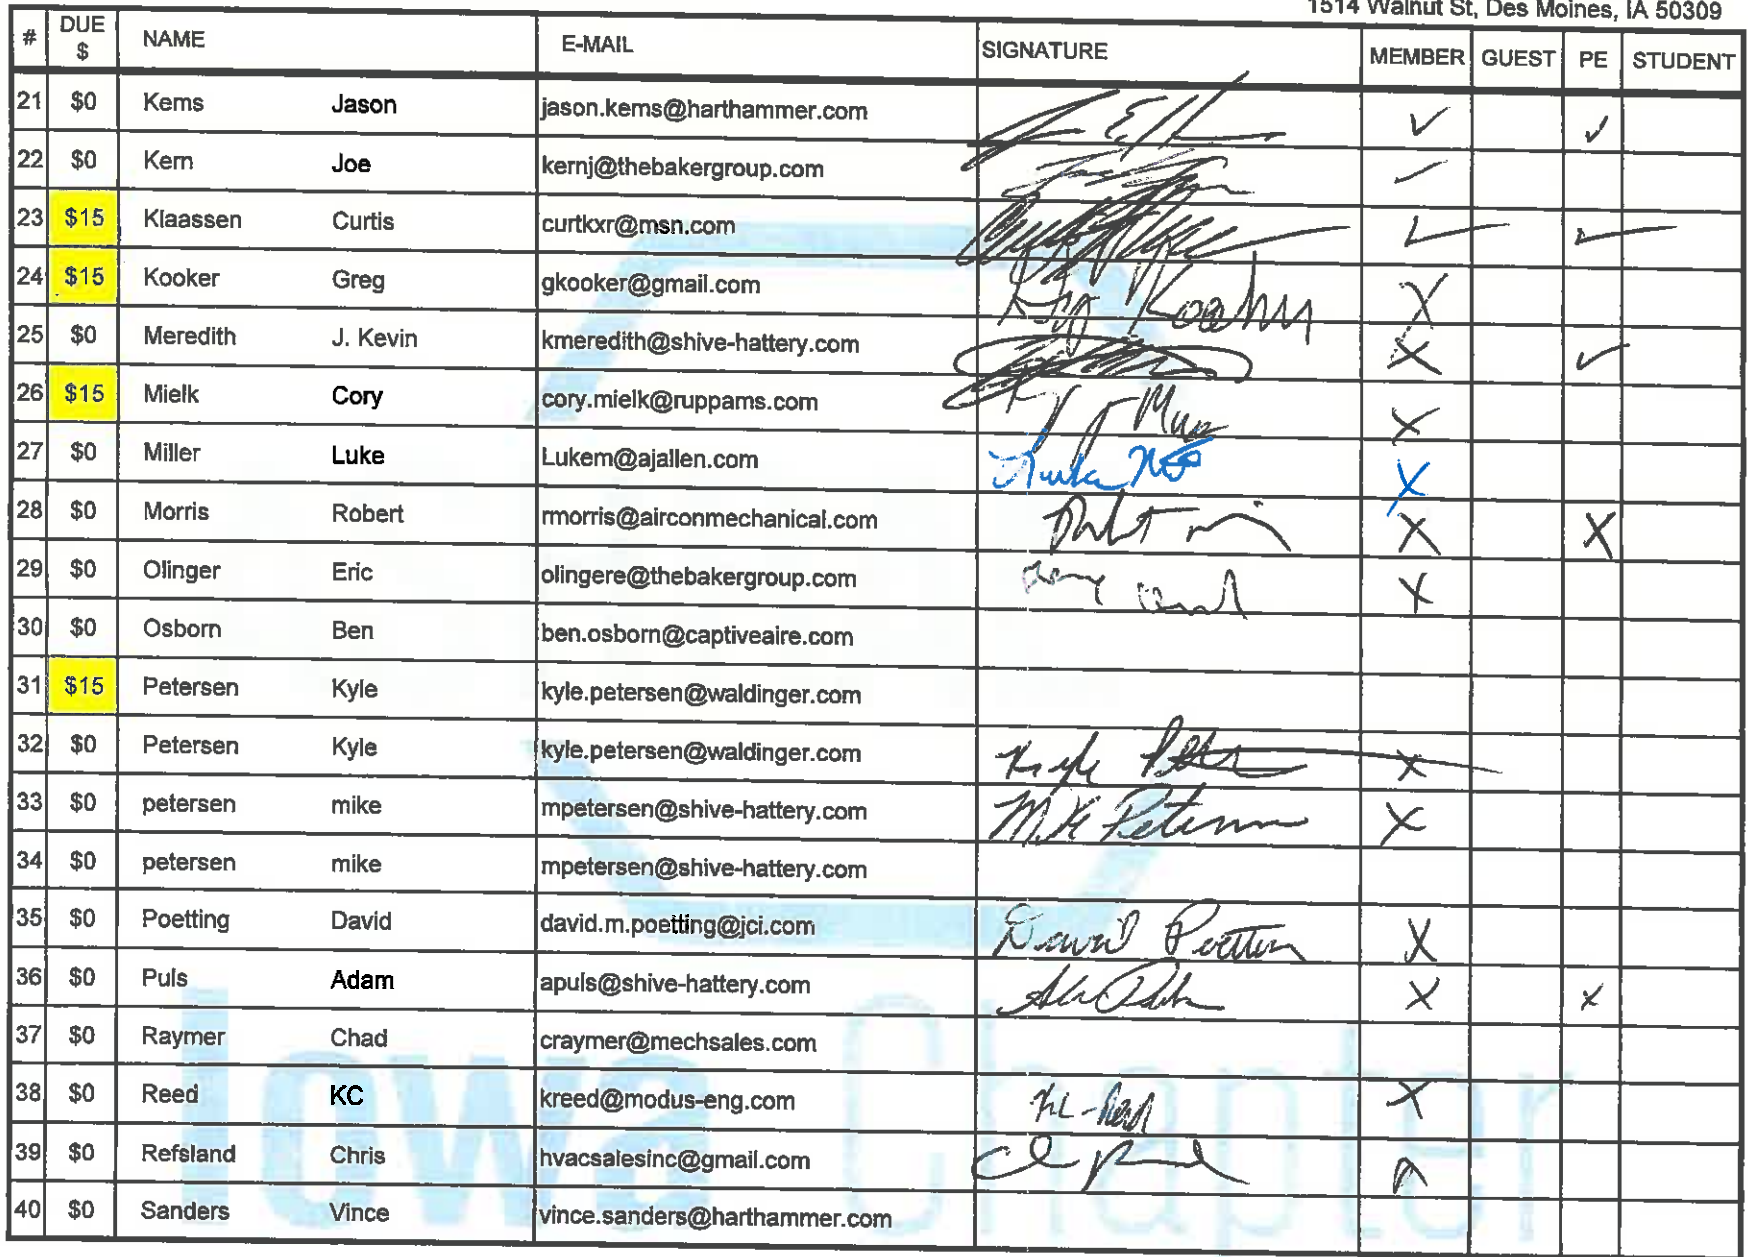 1514 Walnut St, Des Moines, IA 50309
# DUE $ NAME E-MAIL SIGNATURE MEMBER GUEST PE STUDENT
21 $0 Kerns Jason jason.kerns@harthammer.com ✓ ✓
22 $0 Kern Joe kernj@thebakergroup.com ✓
23 $15 Klaassen Curtis curtkxr@msn.com ✓ ✓
24 $15 Kooker Greg gkooker@gmail.com Greg Kooker X
25 $0 Meredith J. Kevin kmeredith@shive-hattery.com X ✓
26 $15 Mielk Cory cory.mielk@ruppams.com X
27 $0 Miller Luke Lukem@ajallen.com Luke X
28 $0 Morris Robert rmorris@airconmechanical.com X X
29 $0 Olinger Eric olingere@thebakergroup.com X
30 $0 Osborn Ben ben.osborn@captiveaire.com
31 $15 Petersen Kyle kyle.petersen@waldinger.com
32 $0 Petersen Kyle kyle.petersen@waldinger.com Kyle X
33 $0 petersen mike mpetersen@shive-hattery.com Petersen X
34 $0 petersen mike mpetersen@shive-hattery.com
35 $0 Poetting David david.m.poetting@jci.com David Poetting X
36 $0 Puls Adam apuls@shive-hattery.com X X
37 $0 Raymer Chad craymer@mechsales.com
38 $0 Reed KC kreed@modus-eng.com KC Reed X
39 $0 Refsland Chris hvacsalesinc@gmail.com
40 $0 Sanders Vince vince.sanders@harthammer.com
Iowa Chapter